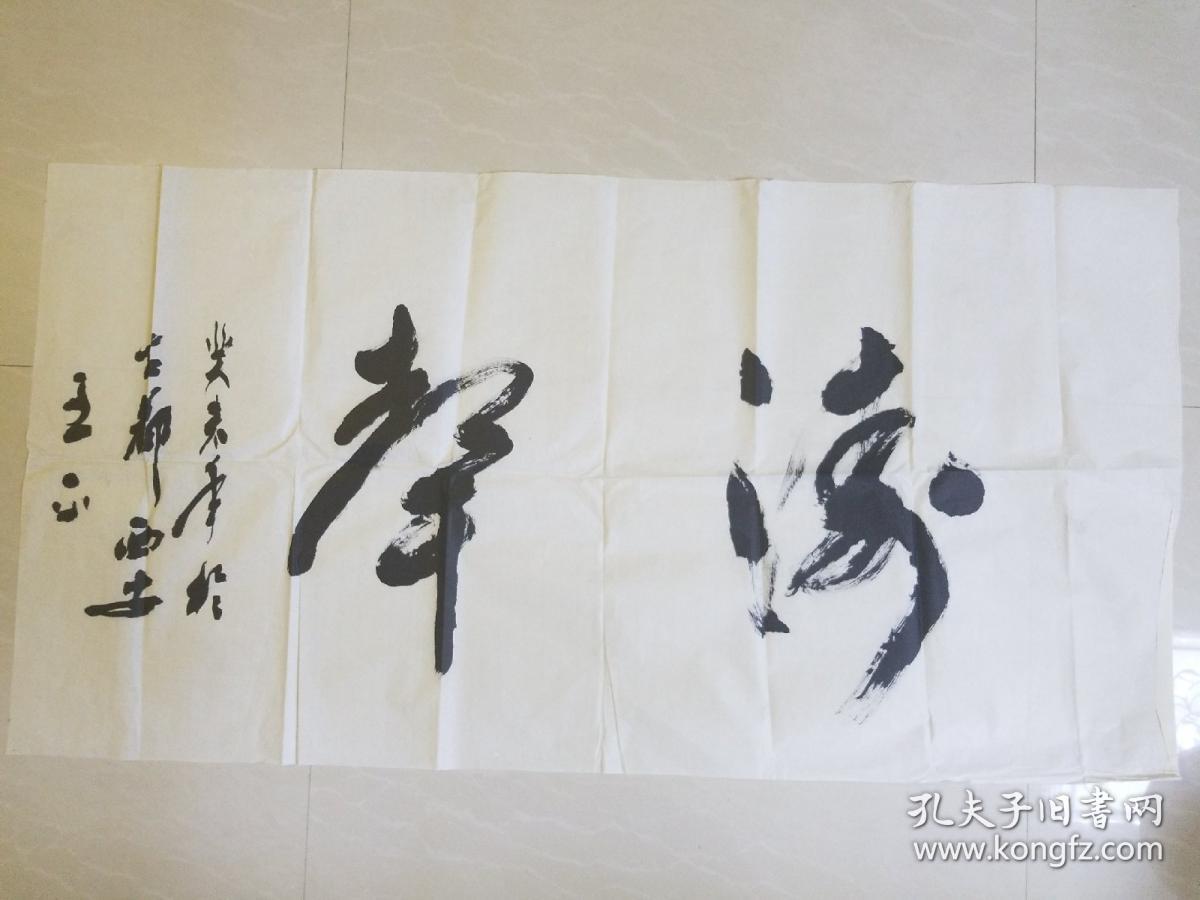 涛聲
癸未年於
古都西安
王正
孔夫子旧書网
www.kongfz.com